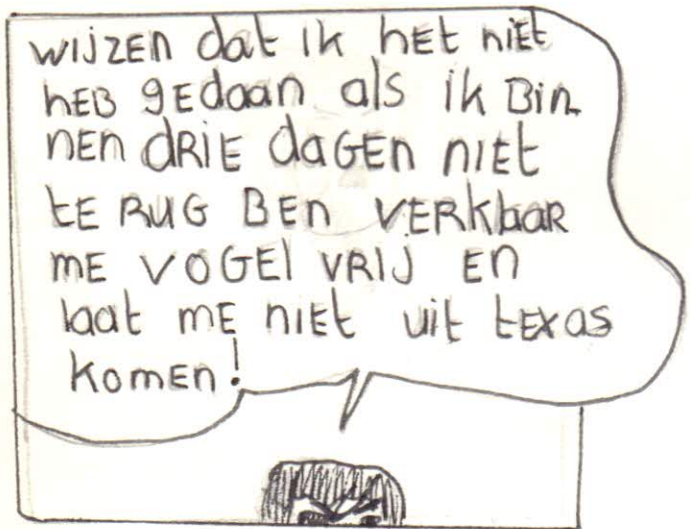 wijzen dat ik het niet
heb gedaan als ik bin
nen drie dagen niet
te rug ben verklaar
me vogel vrij en
laat me niet uit texas
komen!